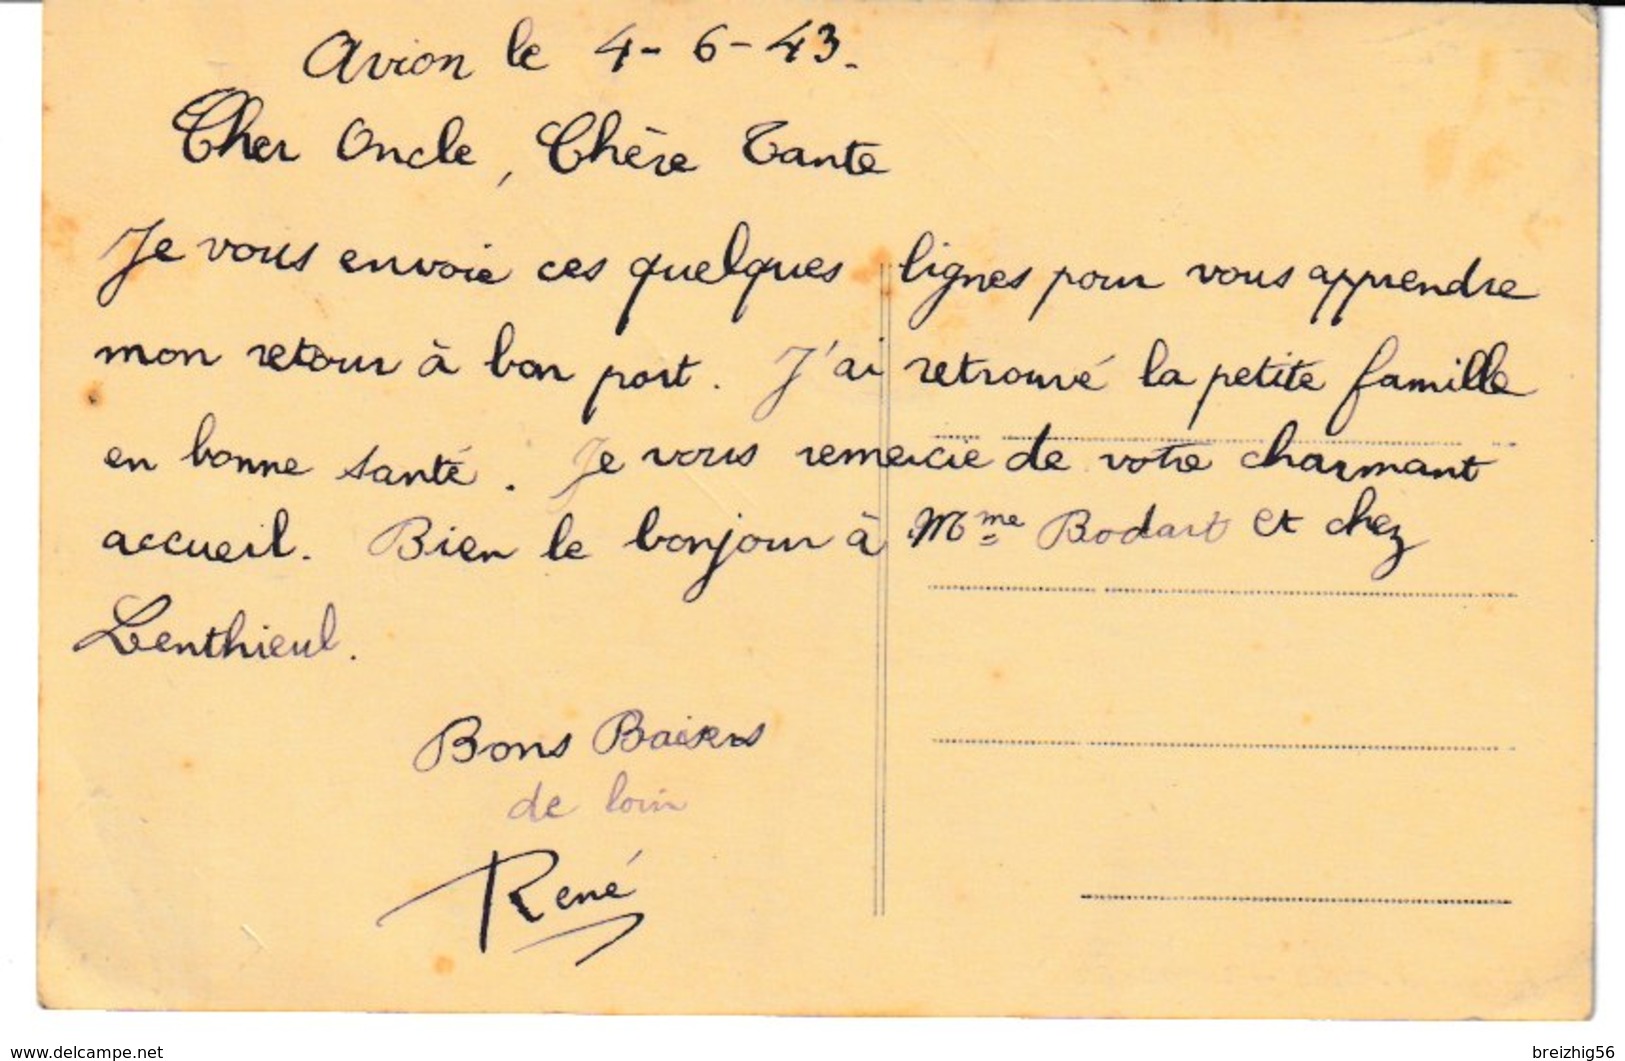 Avion le 4-6-43.
Cher Oncle, Chère Tante
Je vous envoie ces quelques lignes pour vous apprendre
mon retour à bon port. J'ai retrouvé la petite famille
en bonne santé. Je vous remercie de votre charmant
accueil. Bien le bonjour à Mme Bodart et chez
Lenthieul.
Bons Baisers
de loin
René
www.delcampe.net
breizhig56